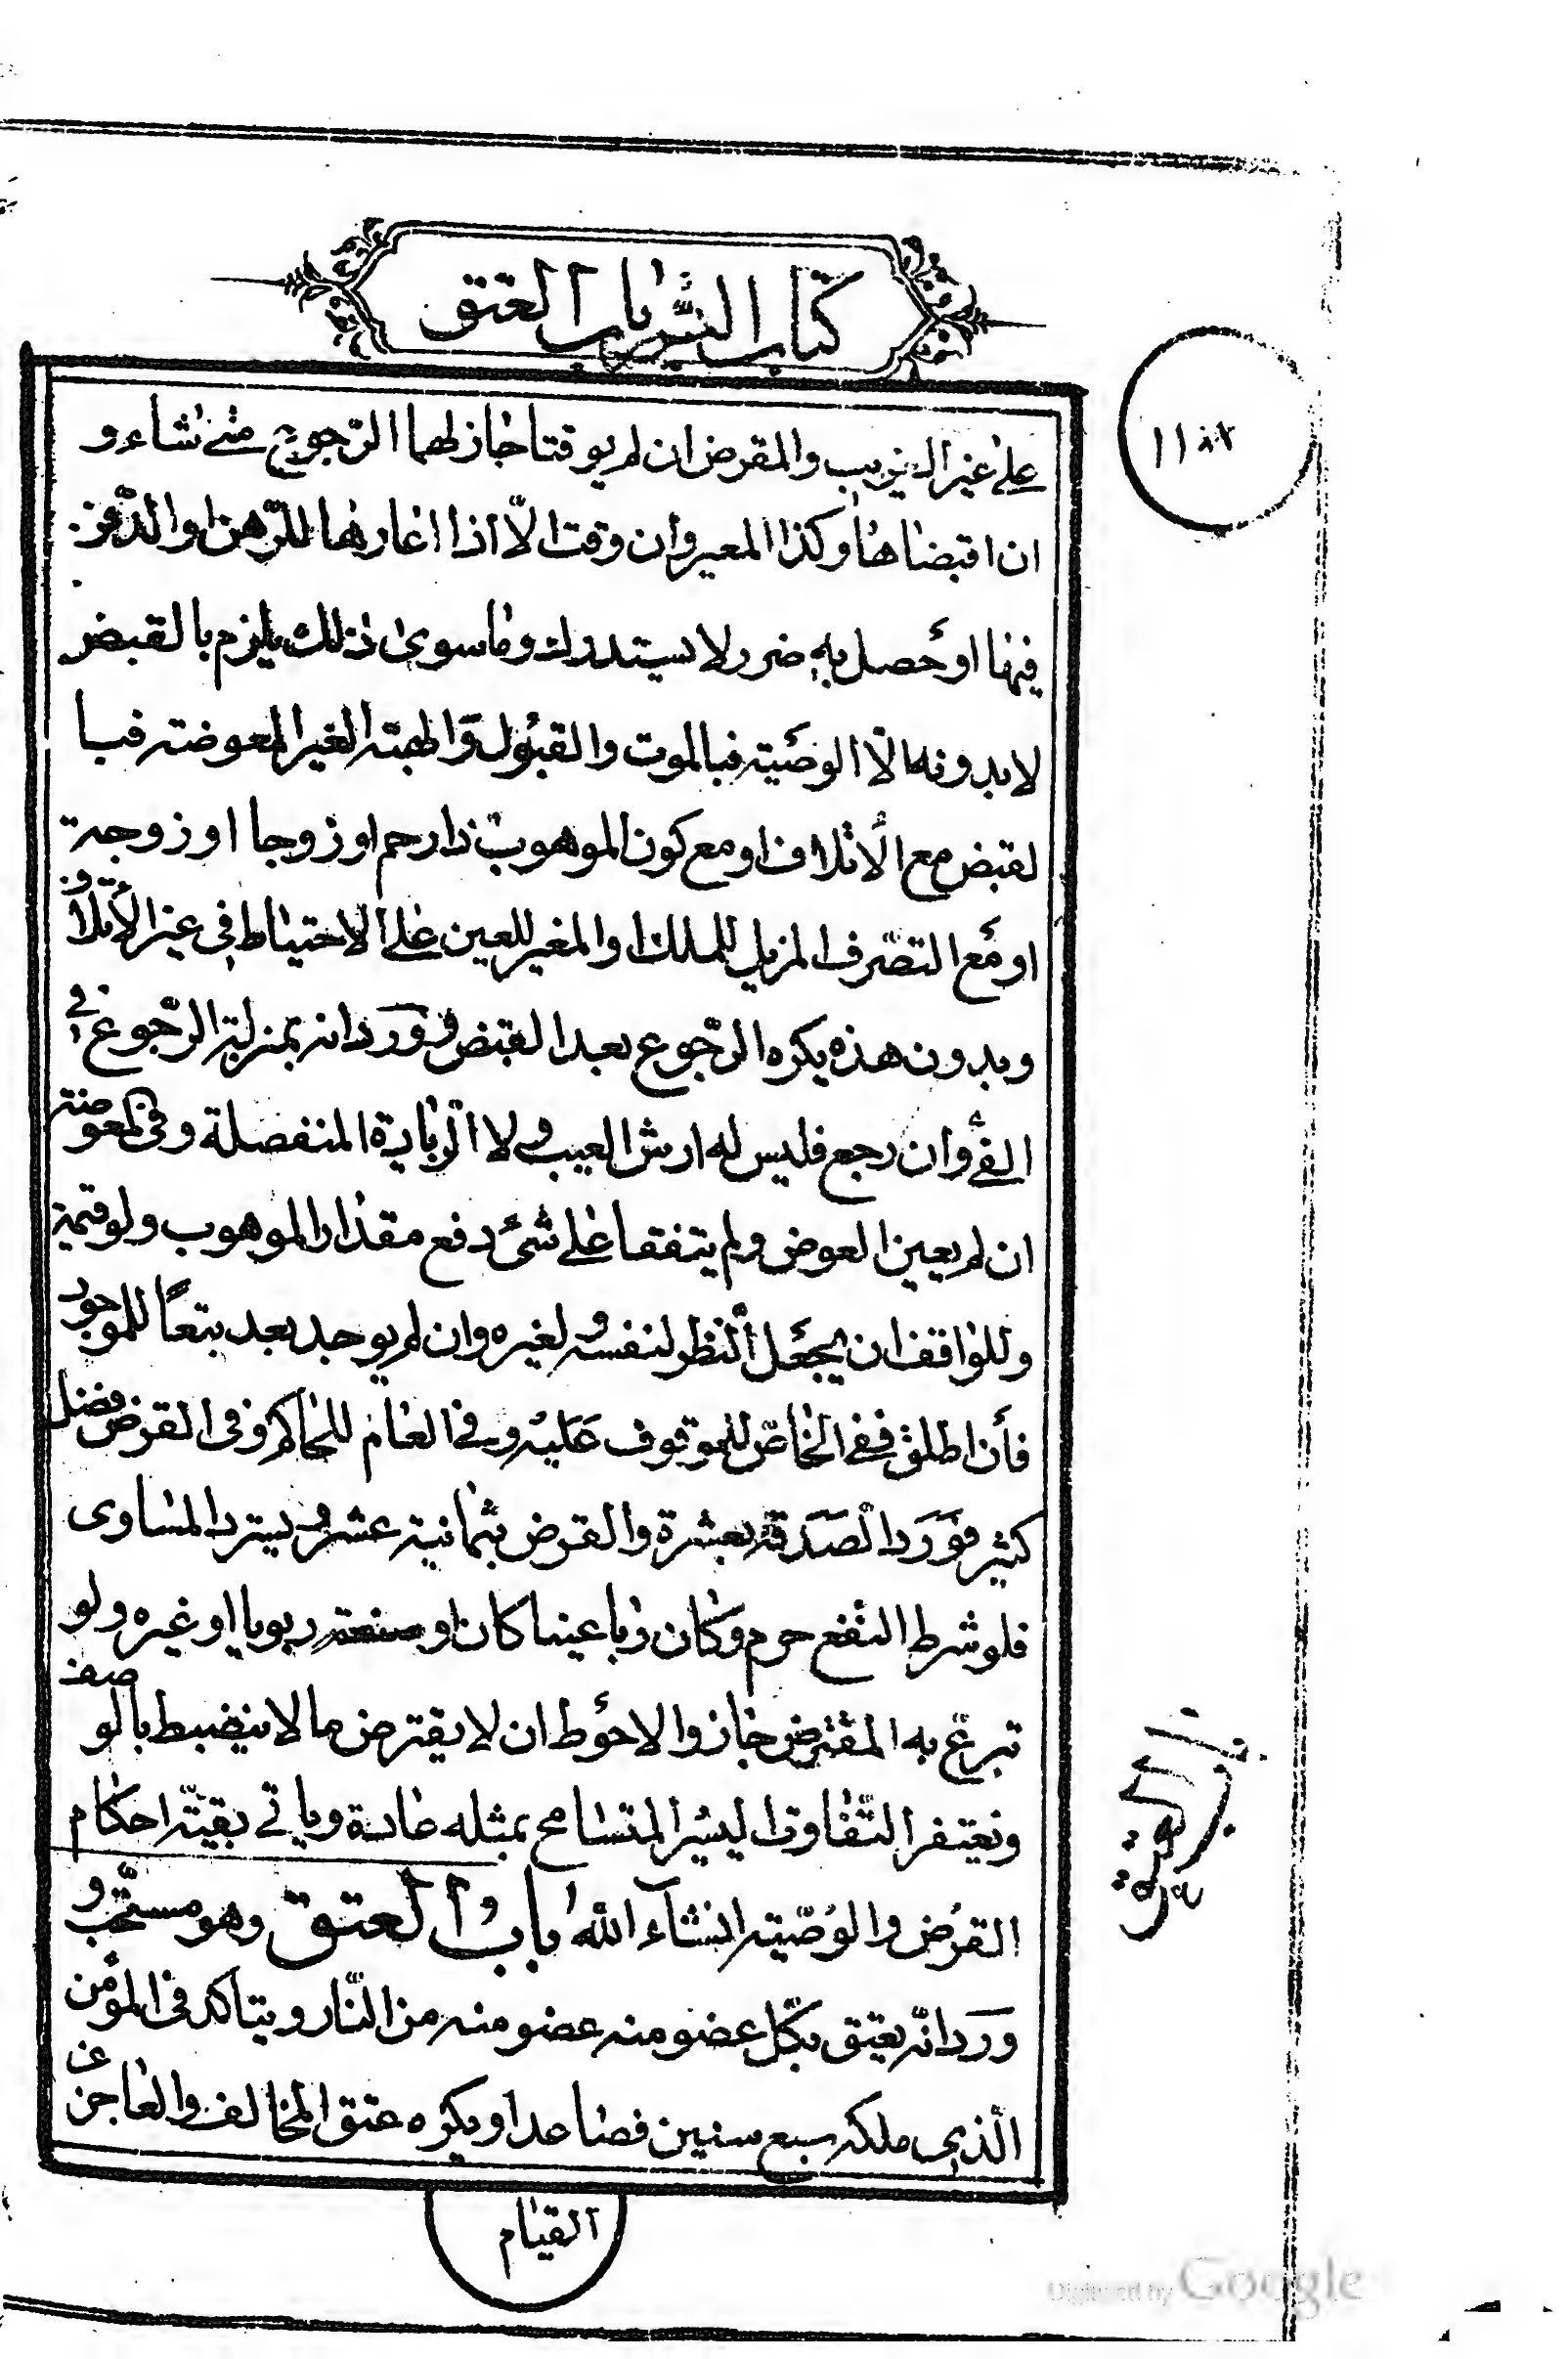 كتاب البر باب العتق
١١٨٧
على غير القريب والمقرض ان لم يوقتا جاز لهما الرّجوع متى شاء و
ان اقبضاها وكذا المعير وان وقت الّا اذا اعارها للرّهن او الدّفن
فيها او حصل به ضرر لا يستدرك وما سوى ذلك يلزم بالقبض
لا بدونه الّا الوصّية فبالموت والقبول والهبة الغير المعوضة فبا
لقبض مع الاتلاف او مع كون الموهوب ذا رحم او زوجا او زوجة
او مع التصّرف المزيل للملك او المغير للعين على الاحتياط فى غير الأتلاف و
وبدون هذه يكره الرّجوع بعد القبض فورد انه بمنزلة الرّجوع فى
القئ وان رجع فليس له ارش العيب ولا الزّيادة المنفصلة وفى المعوضة
ان لم يعين العوض ولم يتفقا على شئ دفع مقدار الموهوب ولو قيمة
وللواقف ان يجعل النّظر لنفسه ولغيره وان لم يوجد بعد تبعًا للموجود
فأن اطلق ففى الخاصّ للموقوف عليه وفى العام للحاكم وفى القرض فضل
كثير فورد الصّدقة بعشرة والقرض بثمانية عشر ويسترد المساوى
فلو شرط النّفع حرم وكان ربا عينا كان او منفعة ربويا او غيره ولو
تبرّع به المقترض جاز والاحوط ان لا يقترض ما لا ينضبط بالوصف
ويغتفر التّفاوت اليسير المتسامح بمثله عادة وياتى بقيّة احكام
القرض والوصّية انشآء الله باب العتق وهو مستحّب و
ورد انّه يعتق بكلّ عضو منه عضو منه من النّار ويتاكد فى المؤمن
الّذى ملكه سبع سنين فصاعدا ويكره عتق المخالف والعاجز عن
القيام
Digitized by Google